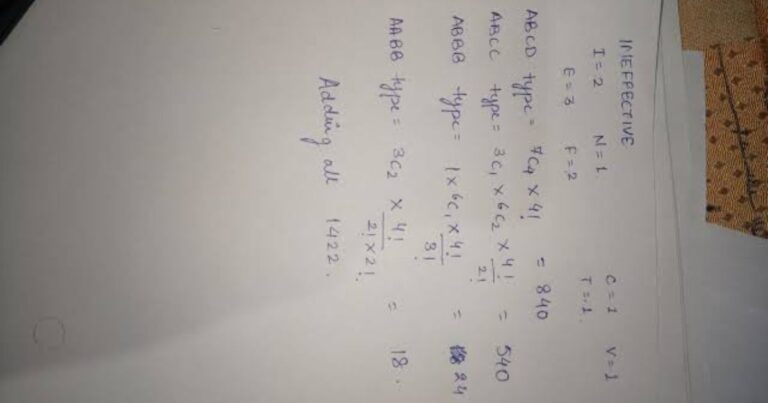 INEFFECTIVE
I = 2 N = 1 C = 1 V = 1
E = 3 F = 2 T = 1
ABCD type = 7C4 × 4! = 840
ABCC type = 3C1 × 6C2 × 4!/2! = 540
ABBB type = 1 × 6C1 × 4!/3! = 24
AABB type = 3C2 × 4!/2!×2! = 18.
Adding all 1422.